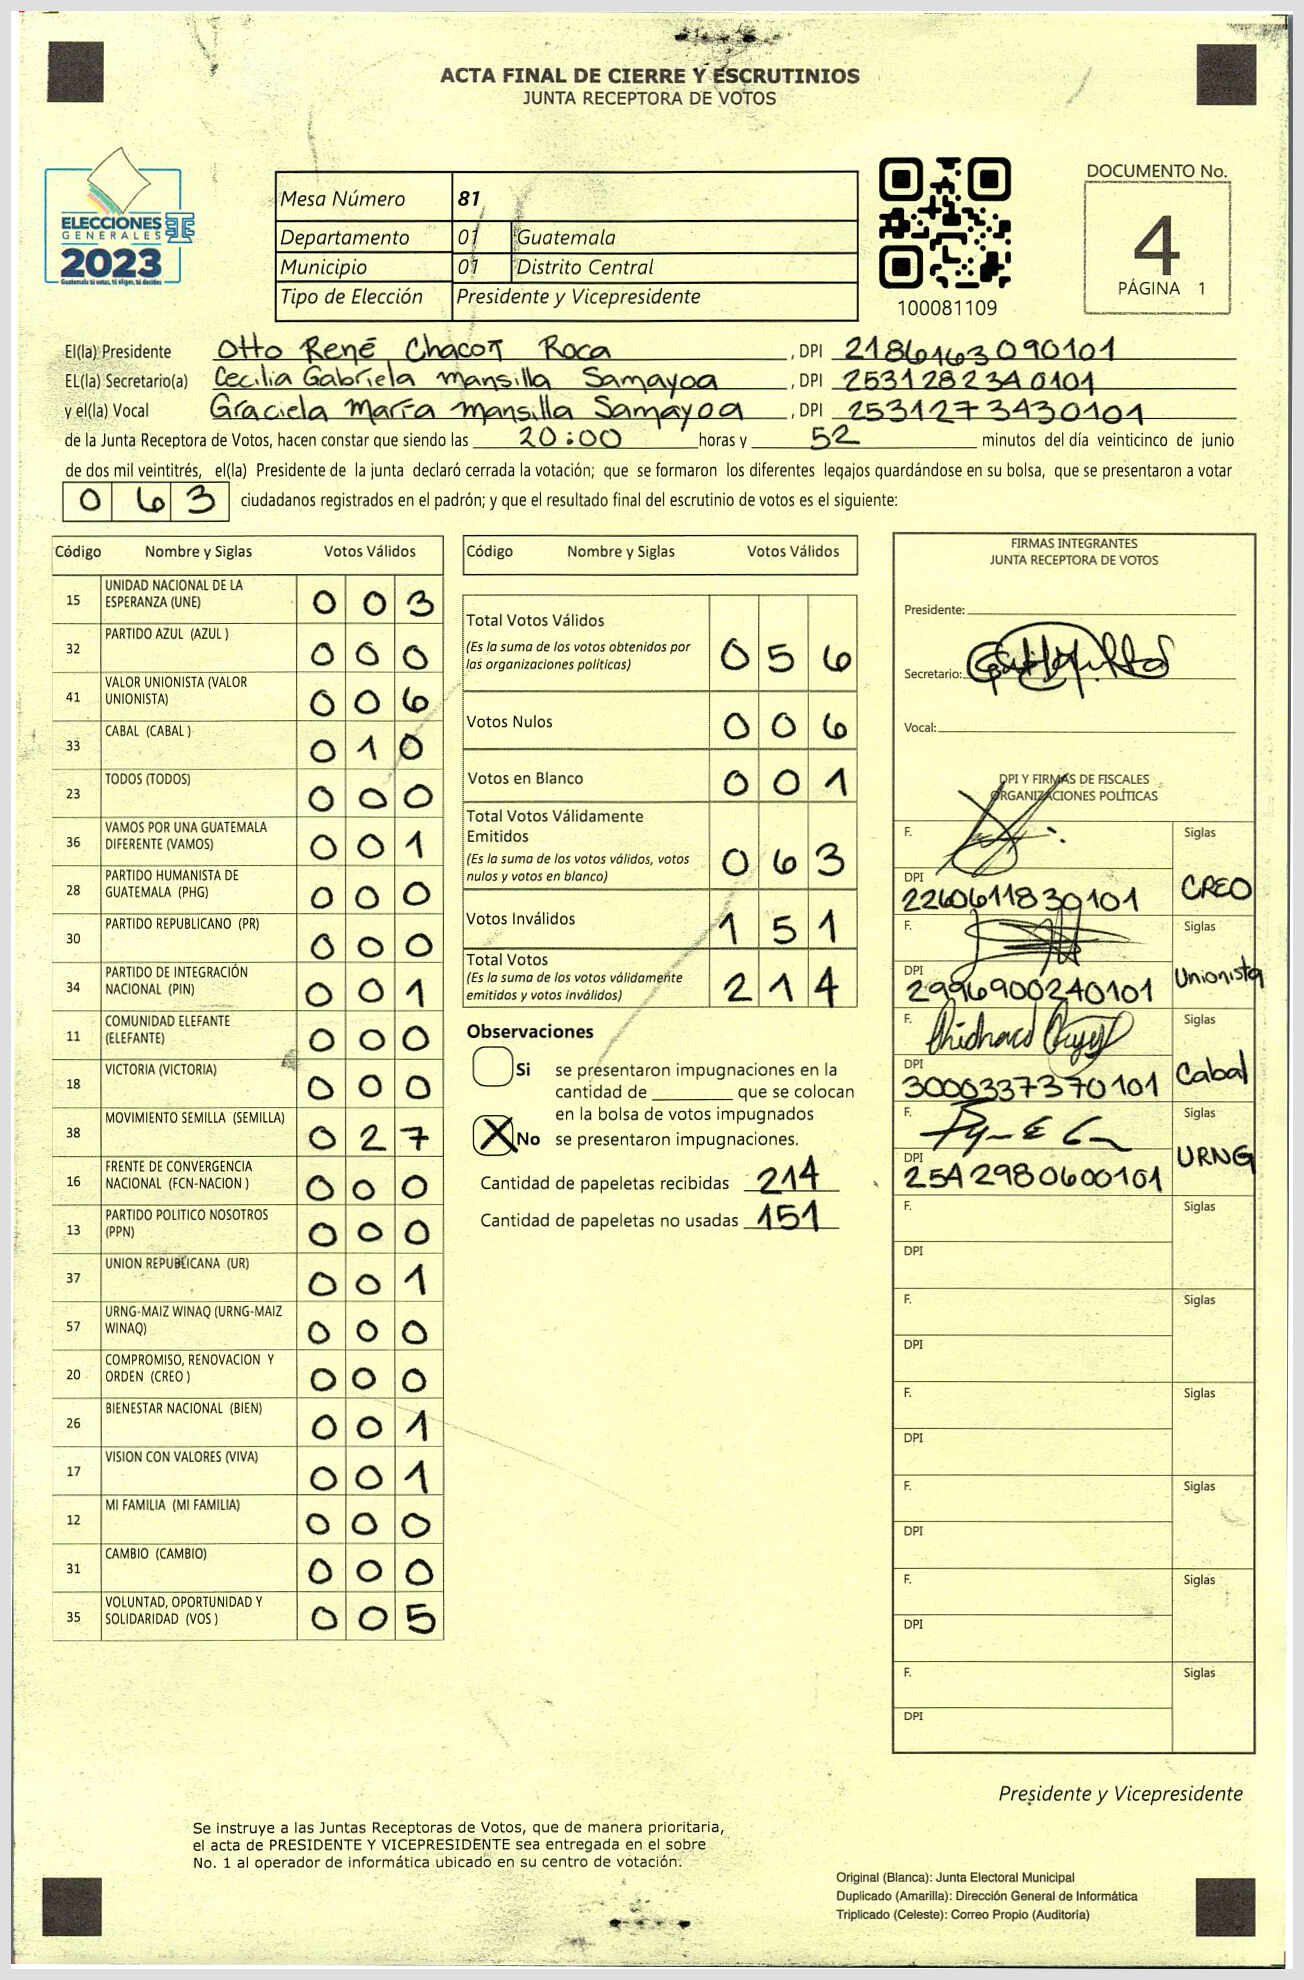 ACTA FINAL DE CIERRE Y ESCRUTINIOS
JUNTA RECEPTORA DE VOTOS
ELECCIONES
GENERALES
2023
Guatemala tú votas, tú eliges, tú decides
Mesa Número 81
Departamento 01 Guatemala
Municipio 01 Distrito Central
Tipo de Elección Presidente y Vicepresidente
100081109
DOCUMENTO No.
4
PÁGINA 1
El(la) Presidente Otto René Chacón Roca, DPI 2186163090101
EL(la) Secretario(a) Cecilia Gabriela Mansilla Samayoa, DPI 2531282340101
y el(la) Vocal Graciela María Mansilla Samayoa, DPI 2531273430101
de la Junta Receptora de Votos, hacen constar que siendo las 20:00 horas y 52 minutos del día veinticinco de junio
de dos mil veintitrés, el(la) Presidente de la junta declaró cerrada la votación; que se formaron los diferentes legajos quardándose en su bolsa, que se presentaron a votar
0 6 3 ciudadanos registrados en el padrón; y que el resultado final del escrutinio de votos es el siguiente:
Código Nombre y Siglas Votos Válidos
15 UNIDAD NACIONAL DE LA ESPERANZA (UNE) 0 0 3
32 PARTIDO AZUL (AZUL ) 0 0 0
41 VALOR UNIONISTA (VALOR UNIONISTA) 0 0 6
33 CABAL (CABAL ) 0 1 0
23 TODOS (TODOS) 0 0 0
36 VAMOS POR UNA GUATEMALA DIFERENTE (VAMOS) 0 0 1
28 PARTIDO HUMANISTA DE GUATEMALA (PHG) 0 0 0
30 PARTIDO REPUBLICANO (PR) 0 0 0
34 PARTIDO DE INTEGRACIÓN NACIONAL (PIN) 0 0 1
11 COMUNIDAD ELEFANTE (ELEFANTE) 0 0 0
18 VICTORIA (VICTORIA) 0 0 0
38 MOVIMIENTO SEMILLA (SEMILLA) 0 2 7
16 FRENTE DE CONVERGENCIA NACIONAL (FCN-NACION ) 0 0 0
13 PARTIDO POLITICO NOSOTROS (PPN) 0 0 0
37 UNION REPUBLICANA (UR) 0 0 1
57 URNG-MAIZ WINAQ (URNG-MAIZ WINAQ) 0 0 0
20 COMPROMISO, RENOVACION Y ORDEN (CREO ) 0 0 0
26 BIENESTAR NACIONAL (BIEN) 0 0 1
17 VISION CON VALORES (VIVA) 0 0 1
12 MI FAMILIA (MI FAMILIA) 0 0 0
31 CAMBIO (CAMBIO) 0 0 0
35 VOLUNTAD, OPORTUNIDAD Y SOLIDARIDAD (VOS ) 0 0 5
Código Nombre y Siglas Votos Válidos
Total Votos Válidos 0 5 6
(Es la suma de los votos obtenidos por
las organizaciones políticas)
Votos Nulos 0 0 6
Votos en Blanco 0 0 1
Total Votos Válidamente
Emitidos 0 6 3
(Es la suma de los votos válidos, votos
nulos y votos en blanco)
Votos Inválidos 1 5 1
Total Votos 2 1 4
(Es la suma de los votos válidamente
emitidos y votos inválidos)
Observaciones
Si se presentaron impugnaciones en la
cantidad de ________ que se colocan
en la bolsa de votos impugnados
X No se presentaron impugnaciones.
Cantidad de papeletas recibidas 214
Cantidad de papeletas no usadas 151
FIRMAS INTEGRANTES
JUNTA RECEPTORA DE VOTOS
Presidente:
Secretario:
Vocal:
DPI Y FIRMAS DE FISCALES
ORGANIZACIONES POLÍTICAS
F. Siglas
DPI 2260611830101 CREO
F. Siglas
DPI 2996900240101 Unionista
F. Siglas
DPI 3000337370101 Cabal
F. Siglas
DPI 2542980600101 URNG
F. Siglas
DPI
F. Siglas
DPI
F. Siglas
DPI
F. Siglas
DPI
F. Siglas
DPI
F. Siglas
DPI
Presidente y Vicepresidente
Se instruye a las Juntas Receptoras de Votos, que de manera prioritaria,
el acta de PRESIDENTE Y VICEPRESIDENTE sea entregada en el sobre
No. 1 al operador de informática ubicado en su centro de votación.
Original (Blanca): Junta Electoral Municipal
Duplicado (Amarilla): Dirección General de Informática
Triplicado (Celeste): Correo Propio (Auditoría)